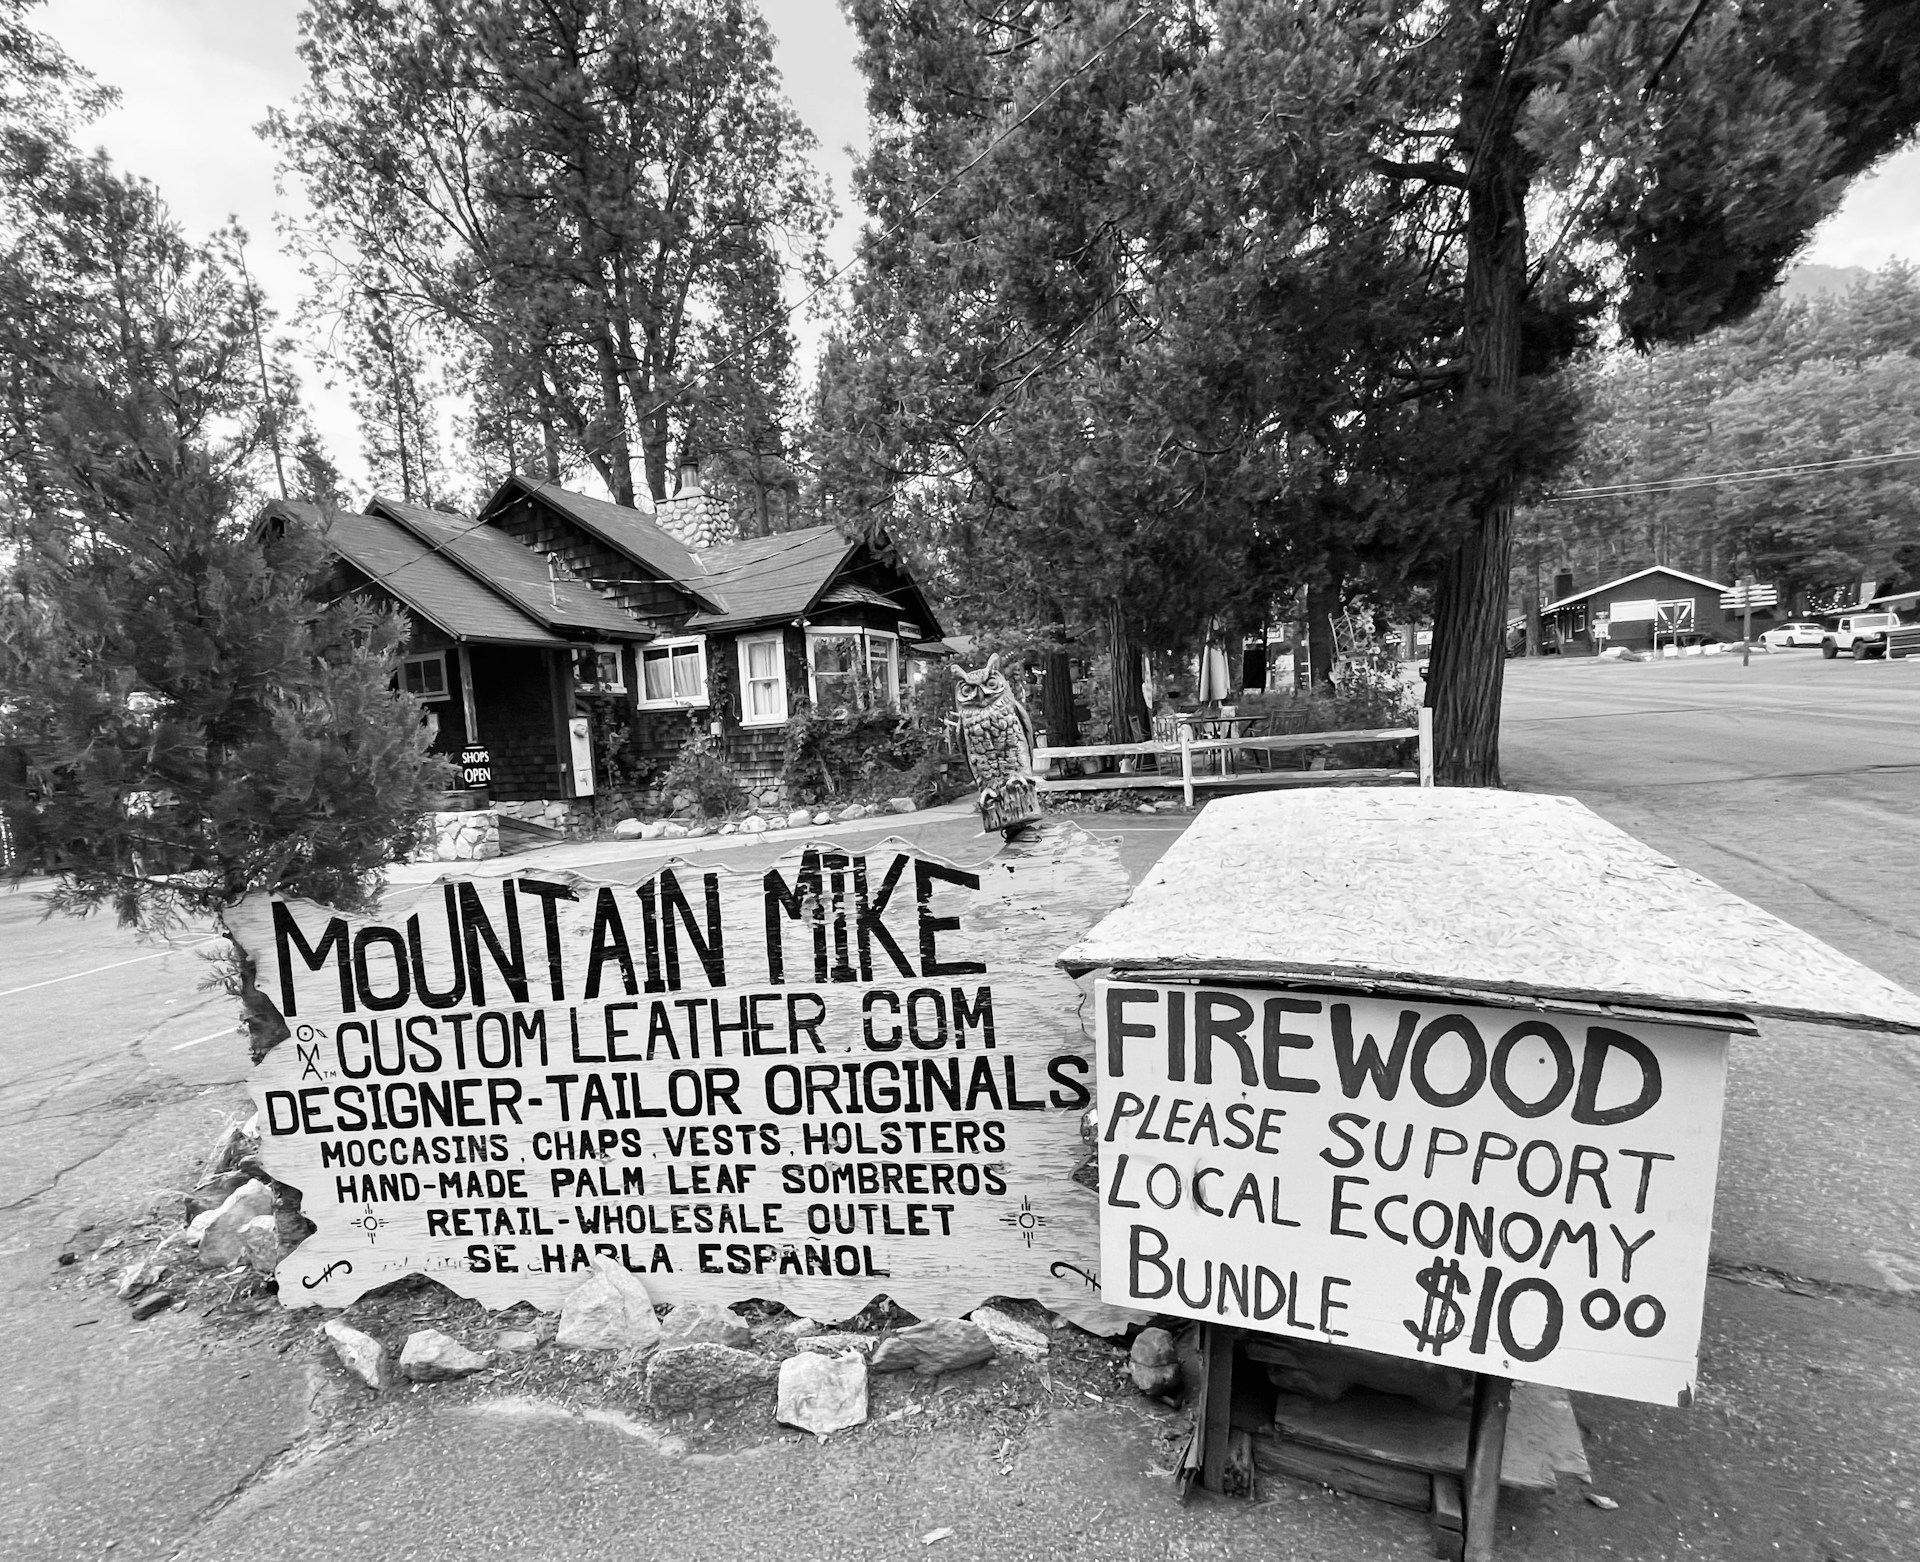 SHOPS
OPEN
MOUNTAIN MIKE
CUSTOM LEATHER.COM
DESIGNER-TAILOR ORIGINALS
MOCCASINS, CHAPS, VESTS, HOLSTERS
HAND-MADE PALM LEAF SOMBREROS
RETAIL-WHOLESALE OUTLET
SE HABLA ESPAÑOL
FIREWOOD
PLEASE SUPPORT
LOCAL ECONOMY
BUNDLE $10⁰⁰